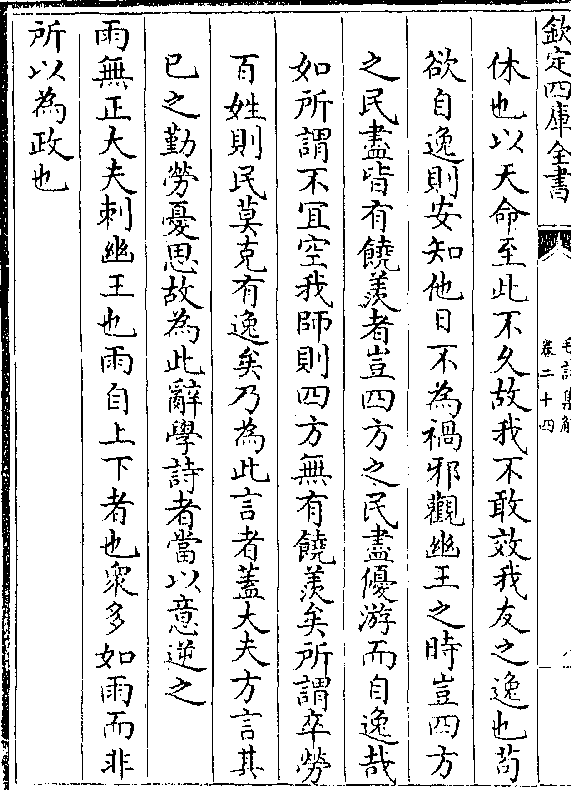 欽定四庫全書
毛詩集解
卷二十四
休也以天命至此不久故我不敢效我友之逸也苟
欲自逸則安知他日不為禍邪觀幽王之時豈四方
之民盡皆有饒羡者豈四方之民盡優游而自逸哉
如所謂不冝空我師則四方無有饒羡矣所謂卒勞
百姓則民莫克有逸矣乃為此言者蓋大夫方言其
已之勤勞憂思故為此辭學詩者當以意逆之
雨無正大夫刺幽王也雨自上下者也衆多如雨而非
所以為政也